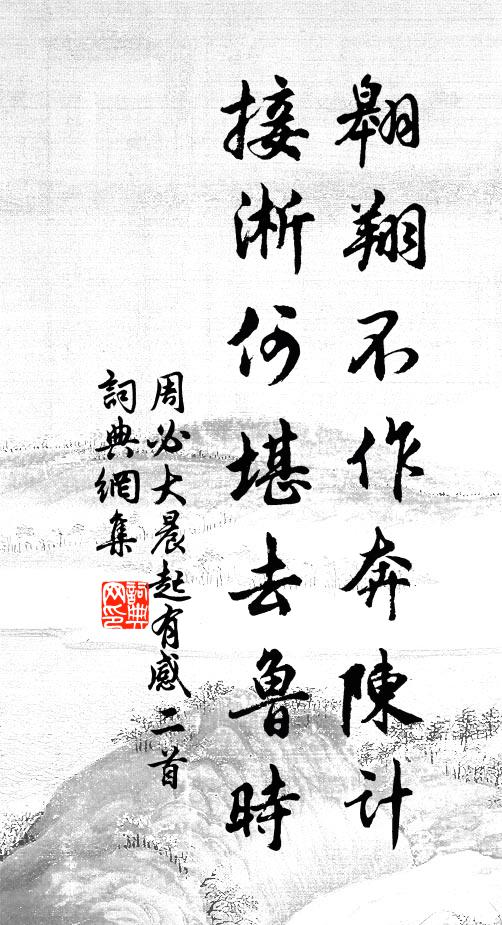 翱翔不作奔陳計
接淅何堪去魯時
周必大晨起有感二首
詞典網集
詞典
网印